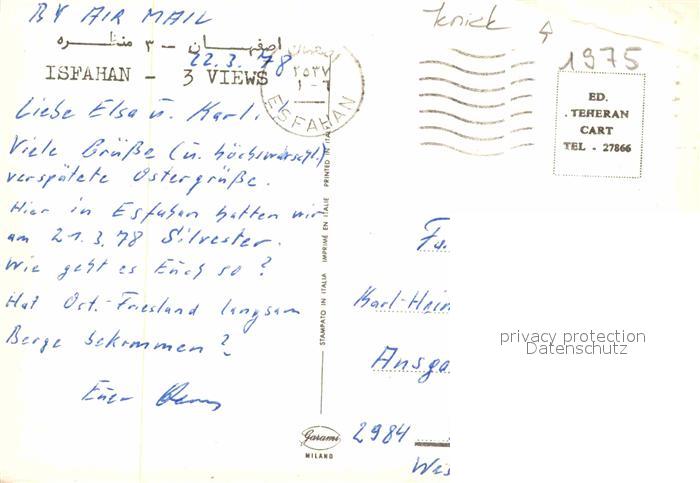 BY AIR MAIL
Knick
1975
اصفهان - ۳ منظره
22.3.78
ISFAHAN - 3 VIEWS
۲۵۳۷
۱-۶
ESFAHAN
ED.
TEHERAN
CART
TEL - 27866
Liebe Elsa u. Karl!
Viele Grüße (u. höchstwarschl.)
verspätete Ostergrüße.
Hier in Esfahan hatten wir
am 21.3.78 Silvester.
Wie geht es Euch so?
Hat Ost-Friesland langsam
Berge bekommen?
Euer
STAMPATO IN ITALIA IMPRIMÉ EN ITALIE PRINTED IN ITALY
Fa.
Karl-Hein
Ansga
2984
Wes
privacy protection
Datenschutz
Garami
MILANO